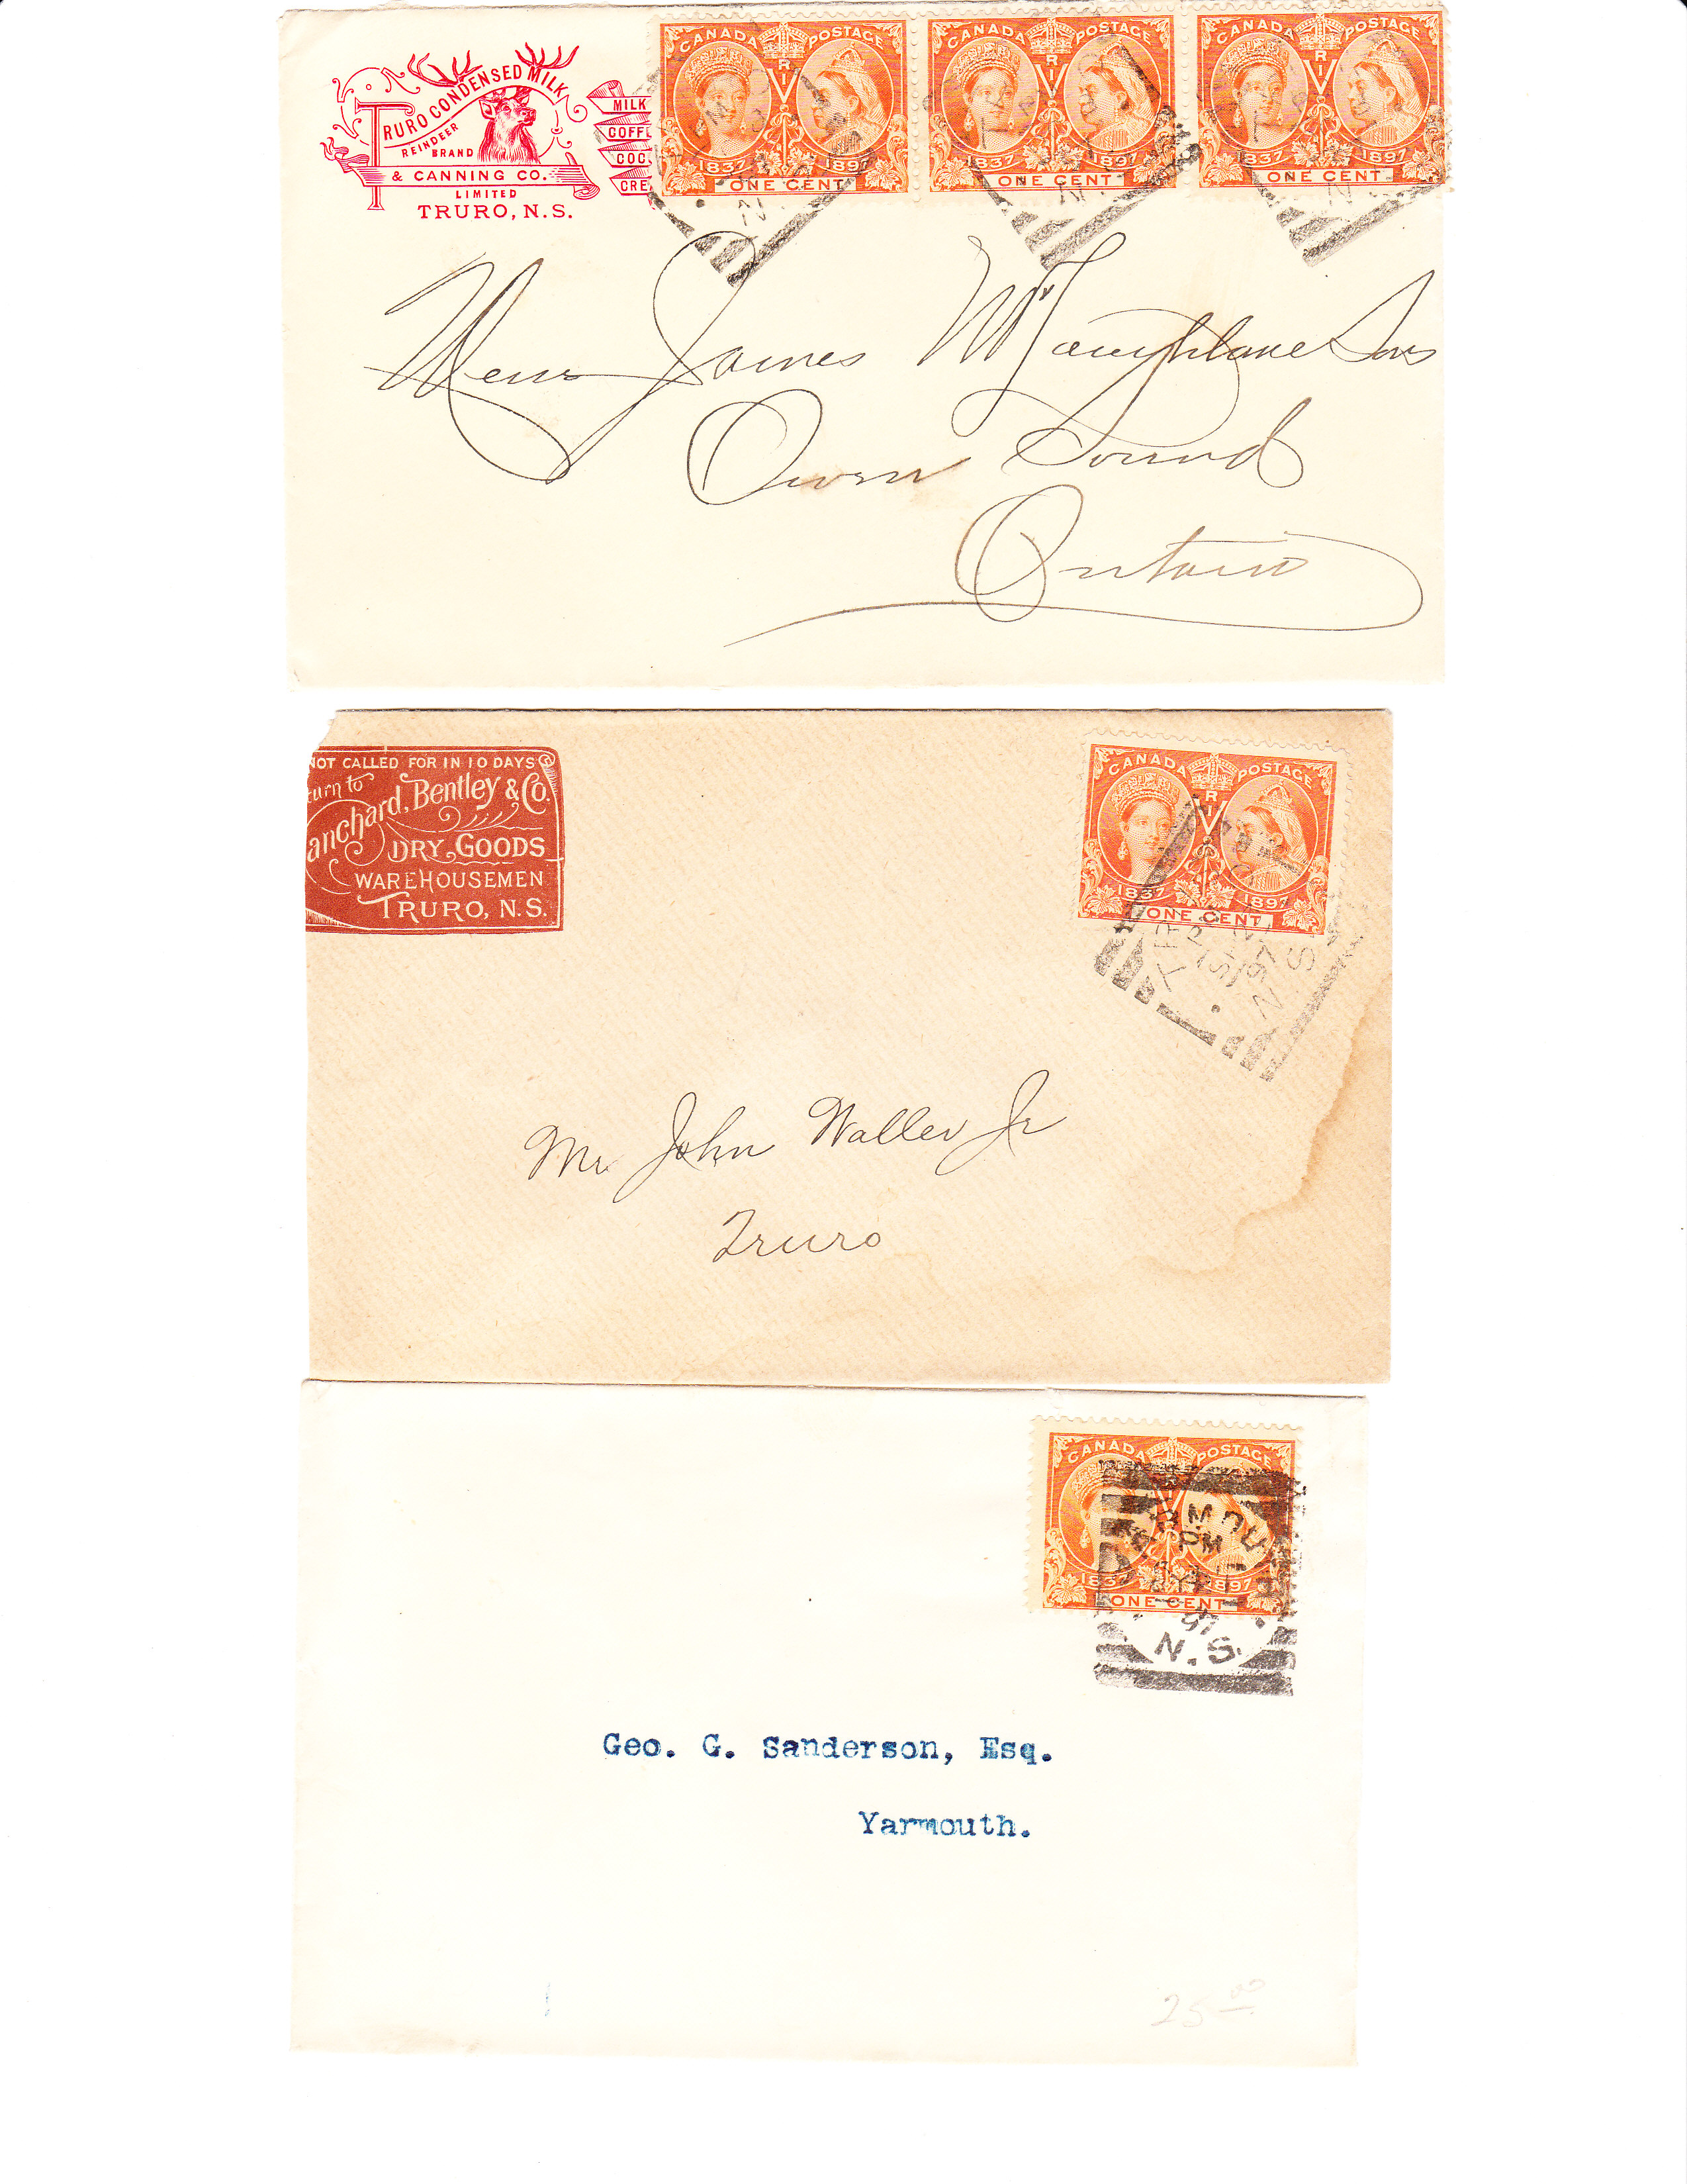 TRURO CONDENSED MILK
REINDEER
BRAND
& CANNING CO.
LIMITED
TRURO, N.S.
MILK
COFFE
COC
CRE
CANADA POSTAGE
V
R I
1837 1897
ONE CENT
CANADA POSTAGE
V
R I
1837 1897
ONE CENT
CANADA POSTAGE
V
R I
1837 1897
ONE CENT
Messrs James & Sons
Owen Sound
Ontario
NOT CALLED FOR IN 10 DAYS
turn to
anchard, Bentley & Co.
DRY GOODS
WAREHOUSEMEN
TRURO, N.S.
CANADA POSTAGE
V
R I
1837 1897
ONE CENT
97
N S
Mr John Waller Jr
Truro
CANADA POSTAGE
1837 1897
ONE CENT
RMOU
PM
97
N.S.
Geo. G. Sanderson, Esq.
Yarmouth.
25.00